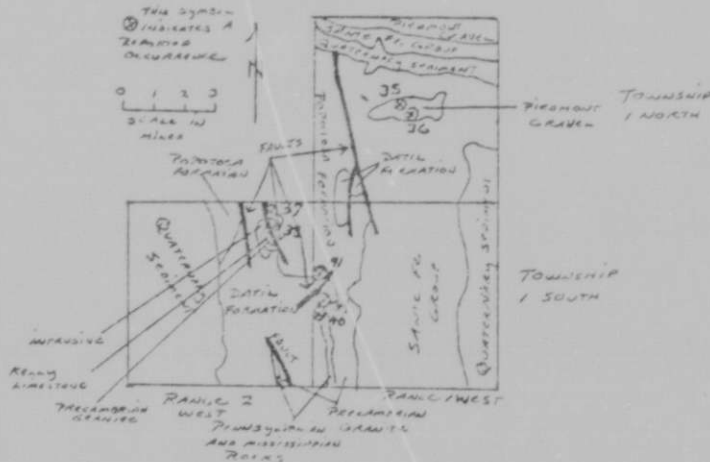 THIS SYMBOL
INDICATES A
OCCURRENCE
N
0 1 2 3
SCALE IN
MILES
PIEDMONT
GRAVEL
SANTA FE GROUP
QUATERNARY SEDIMENT
35
36
PIEDMONT
GRAVEL
TOWNSHIP
1 NORTH
FAULTS
POPOTOSA
FORMATION
POPOTOSA FORMATION
DATIL
FORMATION
37
38
QUATERNARY
SEDIMENT
DATIL
FORMATION
40
SANTA FE
GROUP
QUATERNARY SEDIMENT
TOWNSHIP
1 SOUTH
INTRUSIVE
KELLY
LIMESTONE
PRECAMBRIAN
GRANITE
FAULT
RANGE 2
WEST
RANGE 1 WEST
PRECAMBRIAN
GRANITE
PENNSYLVANIAN
AND MISSISSIPPIAN
ROCKS